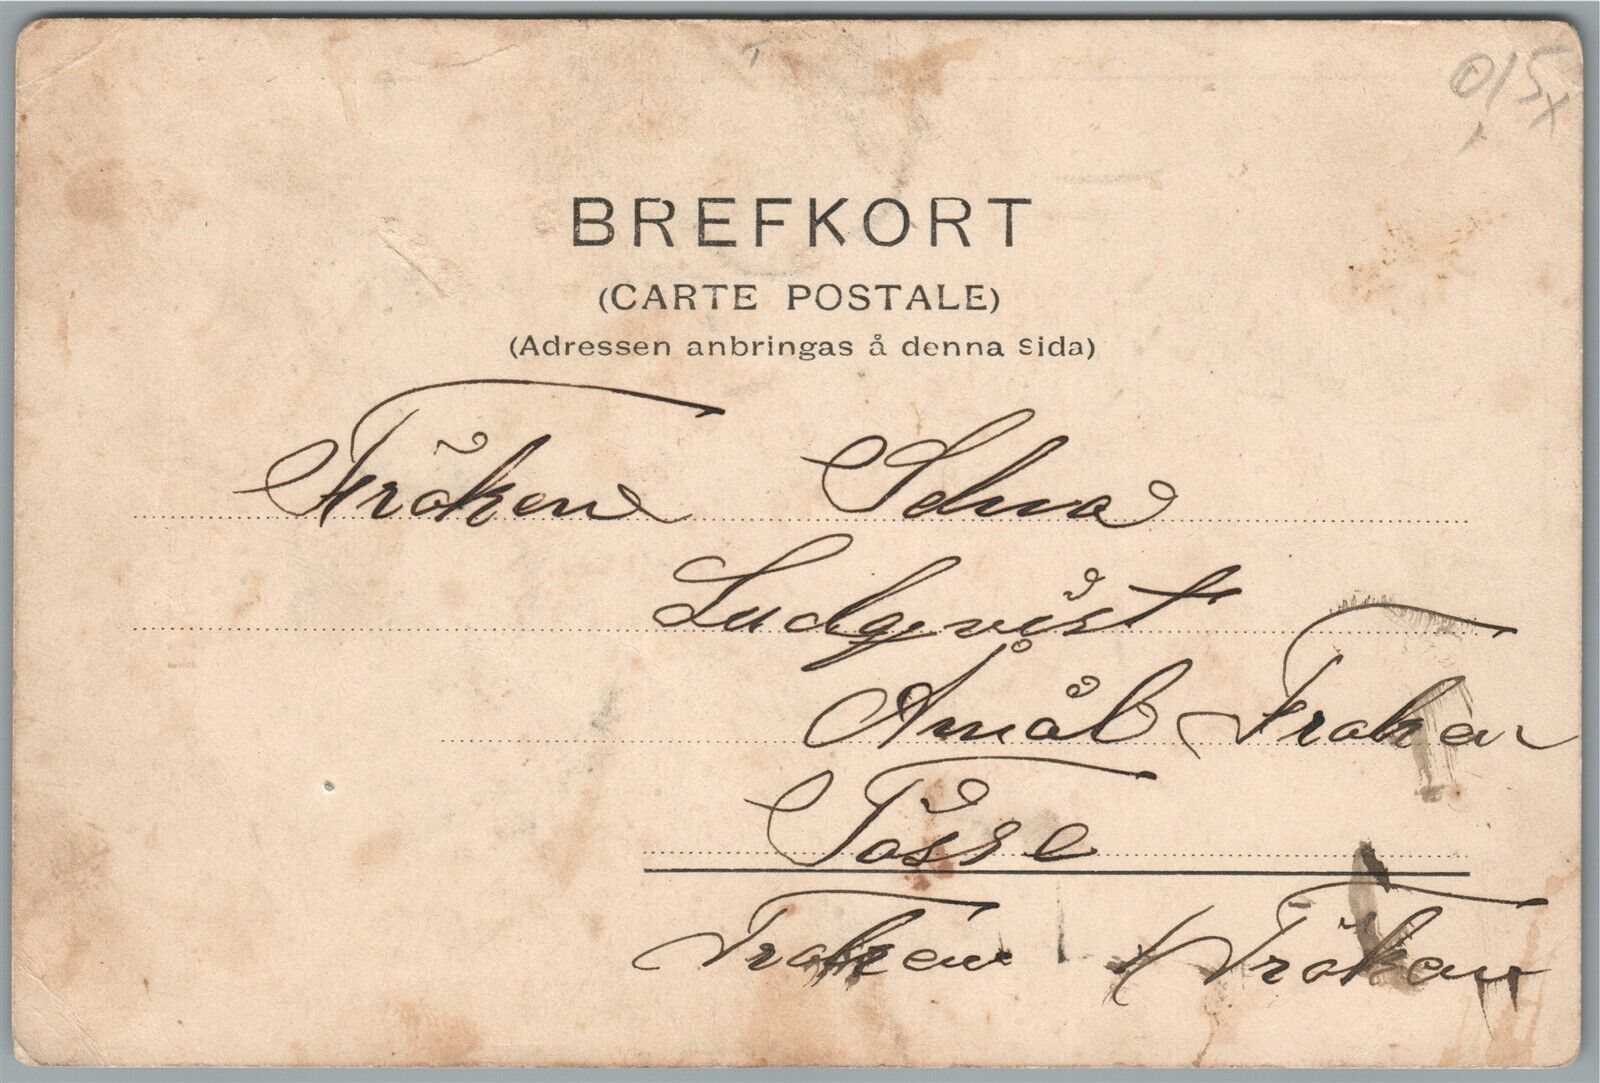 015x
BREFKORT
(CARTE POSTALE)
(Adressen anbringas å denna sida)
Fröken Selma
Ludqvist
Åmål Froken
Tösse
Froken Fröken